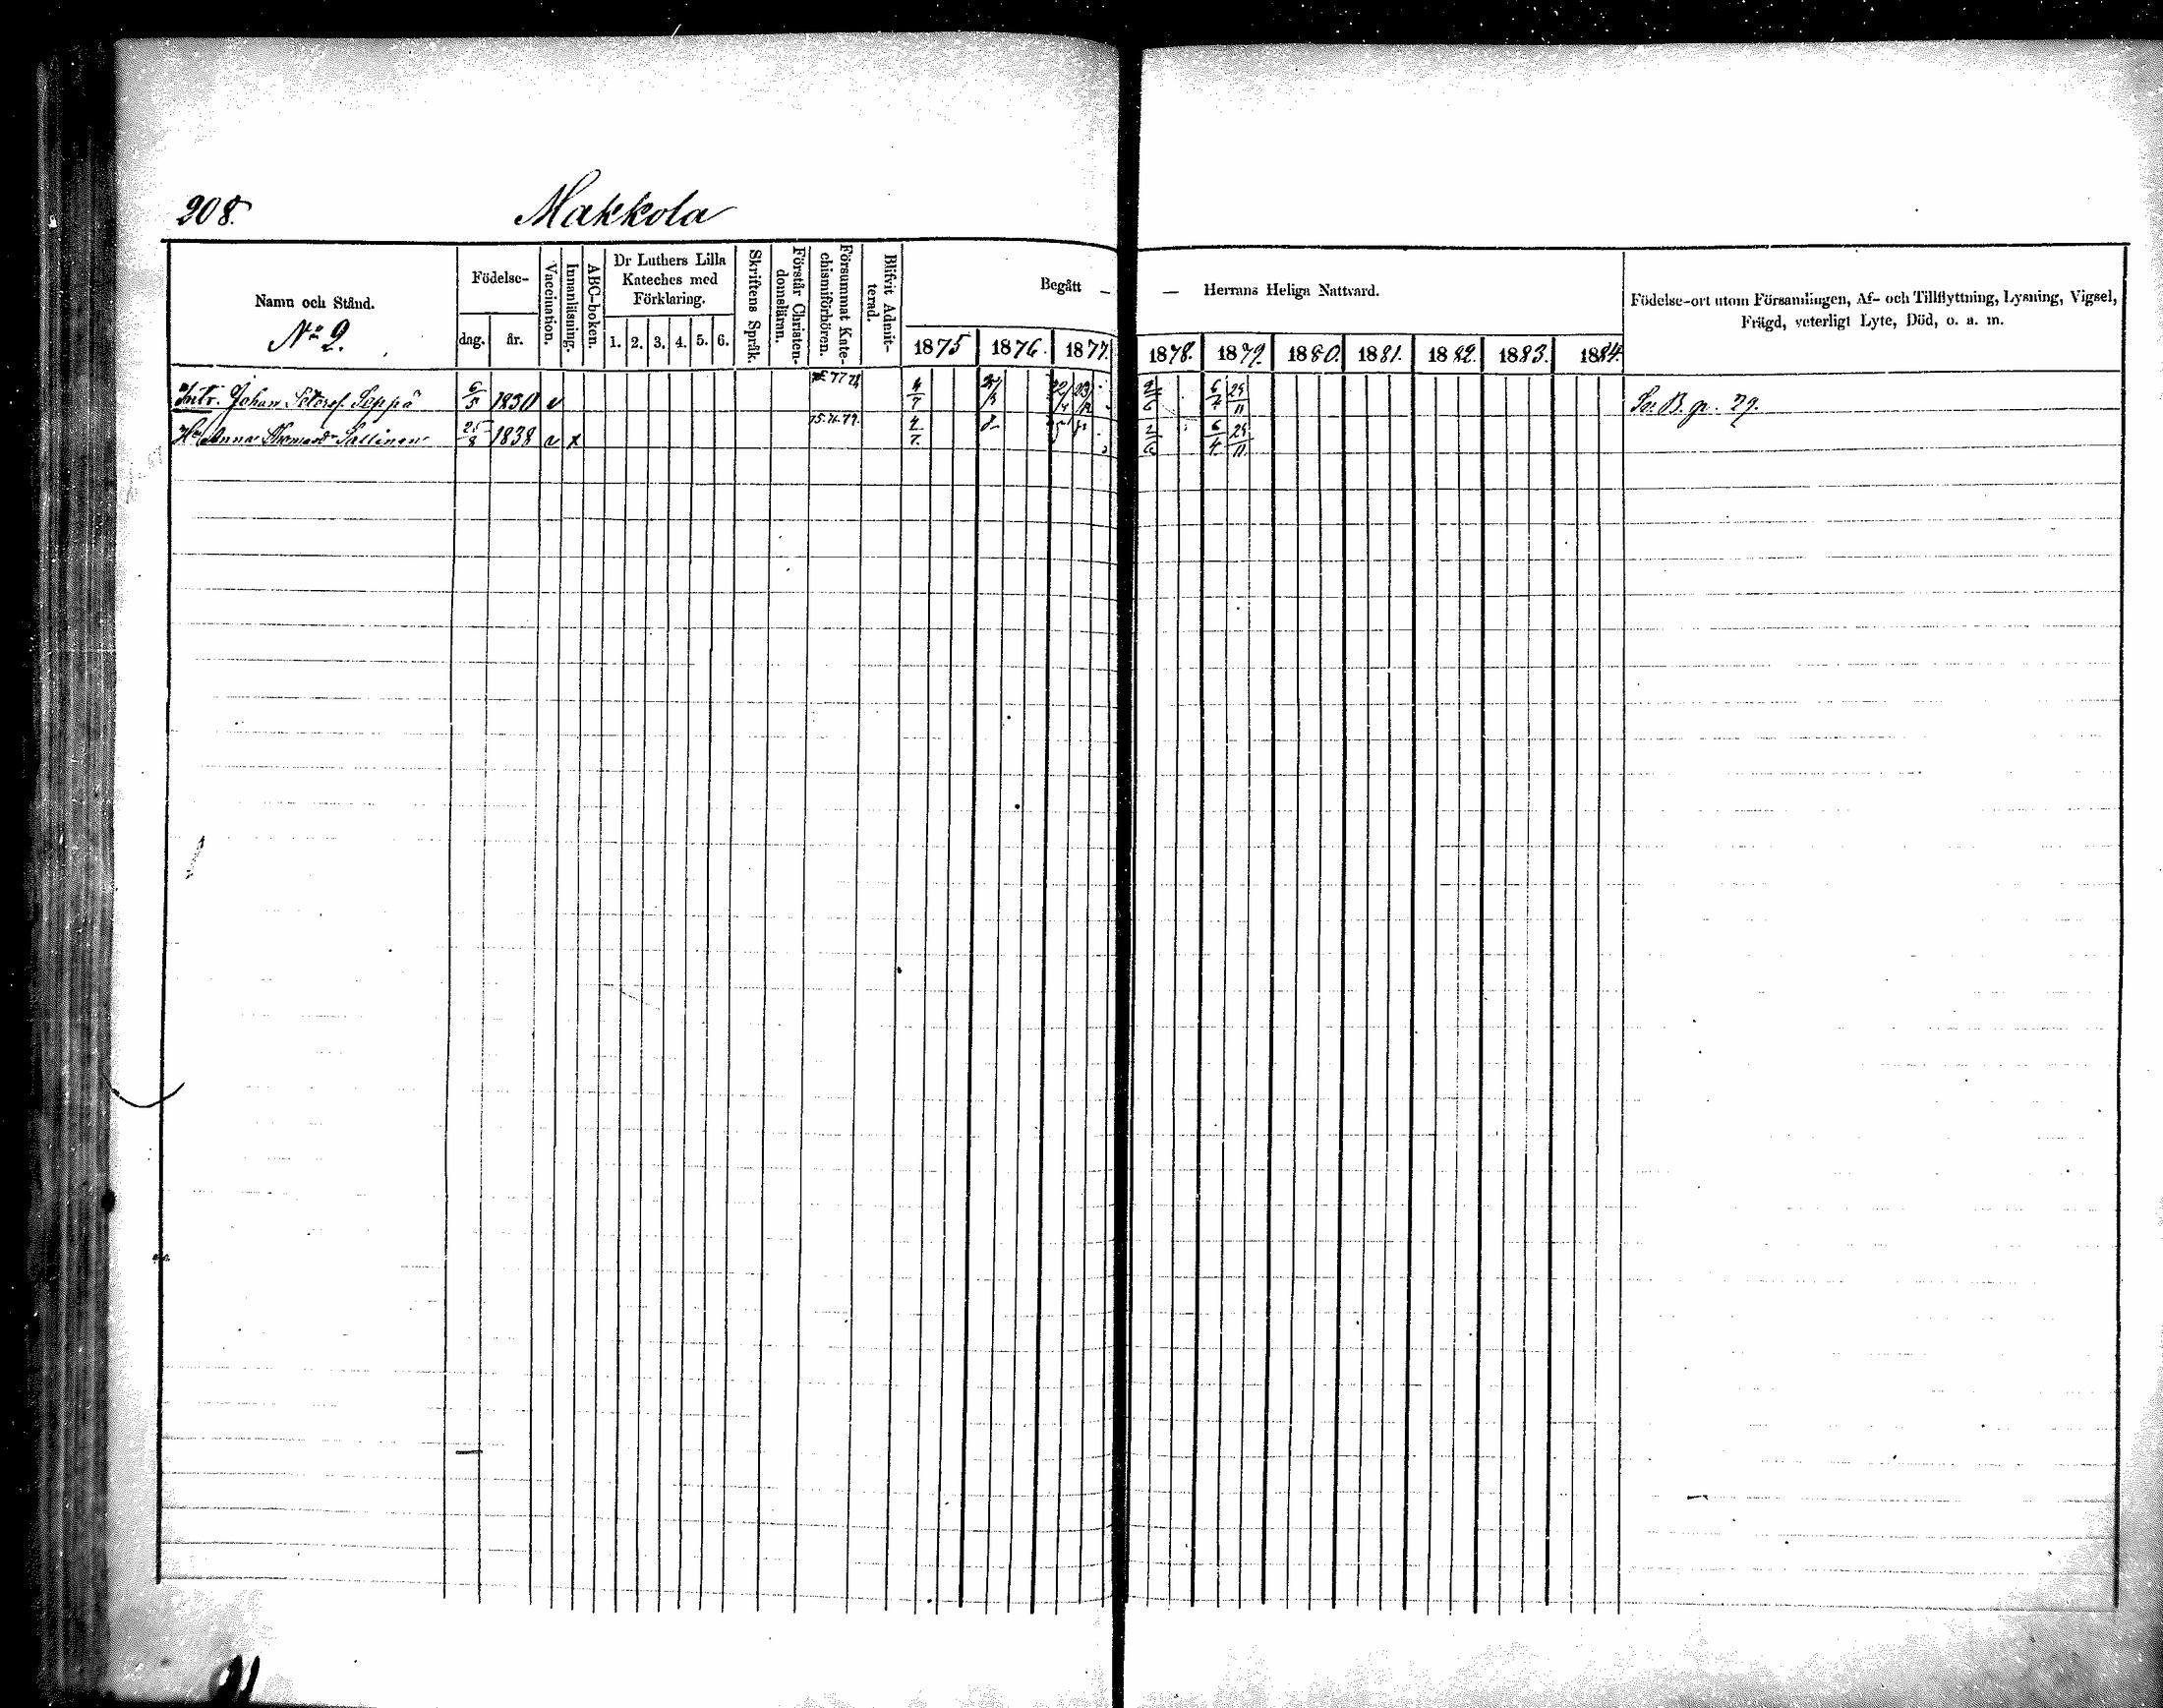 208. Makkola
Namn och Stånd.
No 2.
Födelse-
dag. år.
Vaccination.
Innanläsning.
ABC-boken.
Dr Luthers Lilla
Kateches med
Förklaring.
1. 2. 3. 4. 5. 6.
Skriftens Språk.
Förstår Christen-
domsläran.
Försummat Kate-
chismiförhören.
Blifvit Admit-
terad.
Begått — — Herrans Heliga Nattvard.
1875 1876. 1877. 1878. 1879. 1880. 1881. 1882. 1883. 1884.
Födelse-ort utom Församlingen, Af- och Tillflyttning, Lysning, Vigsel,
Frägd, veterligt Lyte, Död, o. a. m.
Intr. Johan Petersf. Seppä 6/5 1830 v 4/7 22/4 23/12 2/6 6/4 29/11 Se B. p. 29.
Hu Anna Thomasdr Sallinen 25/8 1838 v x 4/7. 2/6 6/4 29/11.